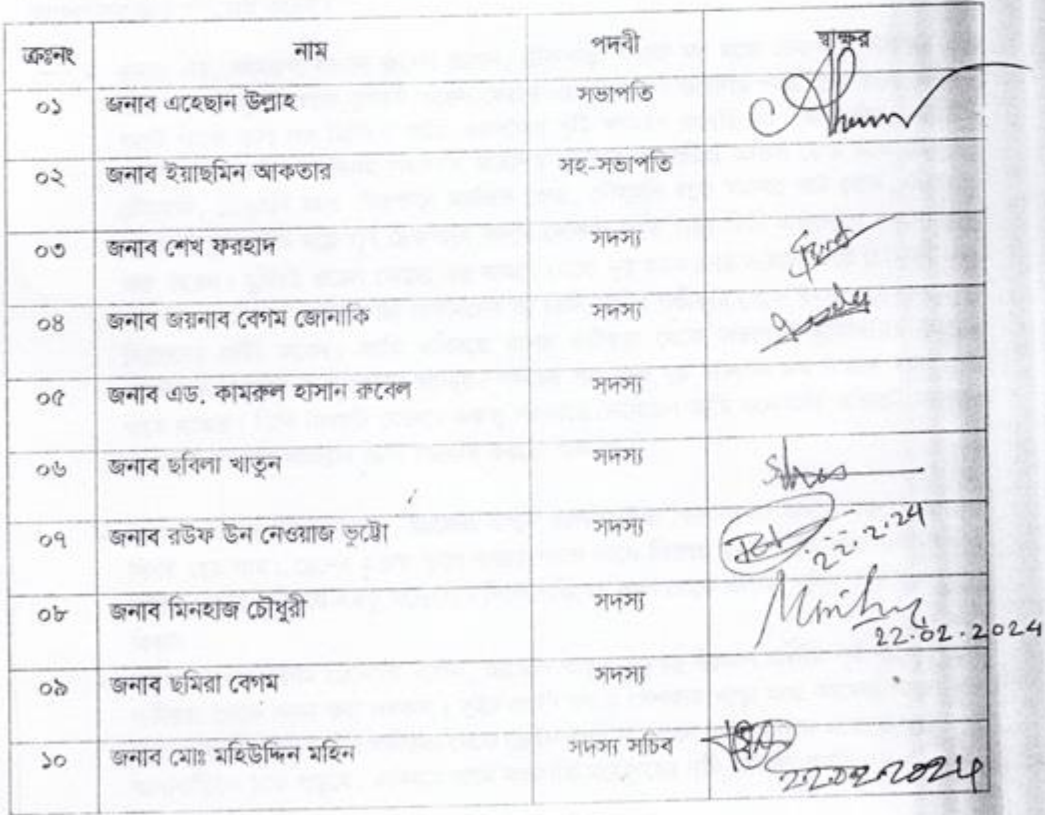 ক্রঃনং নাম পদবী স্বাক্ষর
০১ জনাব এহেছান উল্লাহ সভাপতি
০২ জনাব ইয়াছমিন আকতার সহ-সভাপতি
০৩ জনাব শেখ ফরহাদ সদস্য
০৪ জনাব জয়নাব বেগম জোনাকি সদস্য
০৫ জনাব এড. কামরুল হাসান রুবেল সদস্য
০৬ জনাব ছবিলা খাতুন সদস্য
০৭ জনাব রউফ উন নেওয়াজ ভুট্টো সদস্য 22.2.24
০৮ জনাব মিনহাজ চৌধুরী সদস্য 22.02.2024
০৯ জনাব ছমিরা বেগম সদস্য
১০ জনাব মোঃ মহিউদ্দিন মহিন সদস্য সচিব 22.02.2024